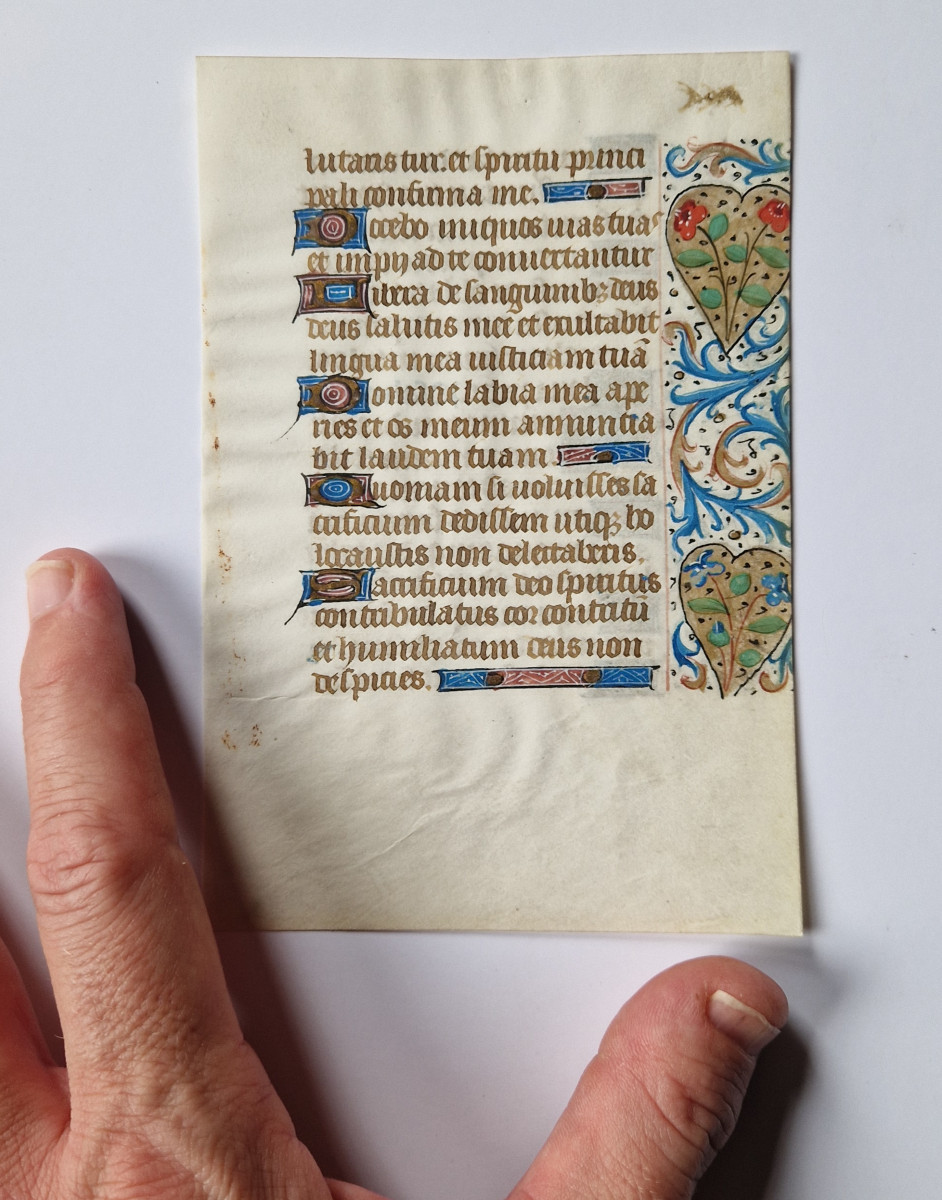 lutaris tui. et spiritu princi
pali confirma me.
Docebo iniquos uias tuas
et impij ad te conuertantur
Libera de sanguinibꝫ deus
deus salutis mee et exultabit
lingua mea iusticiam tuā
Domine labia mea ape
ries et os meum annuncia
bit laudem tuam.
Quoniam si uoluisses sa
crificium dedissem utiqꝫ ho
locaustis non delectaberis.
Sacrificium deo spiritus
contribulatus cor contritū
et humiliatum deus non
despicies.